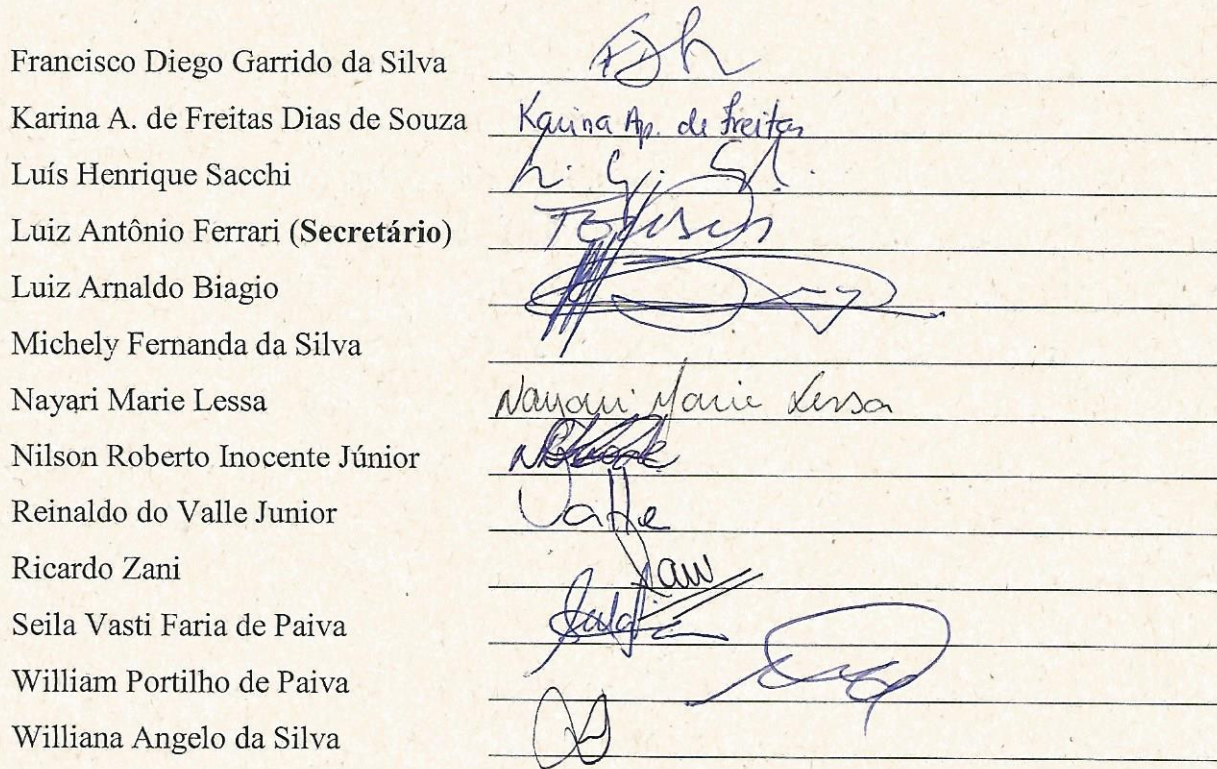 Francisco Diego Garrido da Silva
Karina A. de Freitas Dias de Souza Karina Ap. de Freitas
Luís Henrique Sacchi
Luiz Antônio Ferrari (Secretário)
Luiz Arnaldo Biagio
Michely Fernanda da Silva
Nayari Marie Lessa Nayari Marie Lessa
Nilson Roberto Inocente Júnior
Reinaldo do Valle Junior Valle
Ricardo Zani
Seila Vasti Faria de Paiva
William Portilho de Paiva
Williana Angelo da Silva